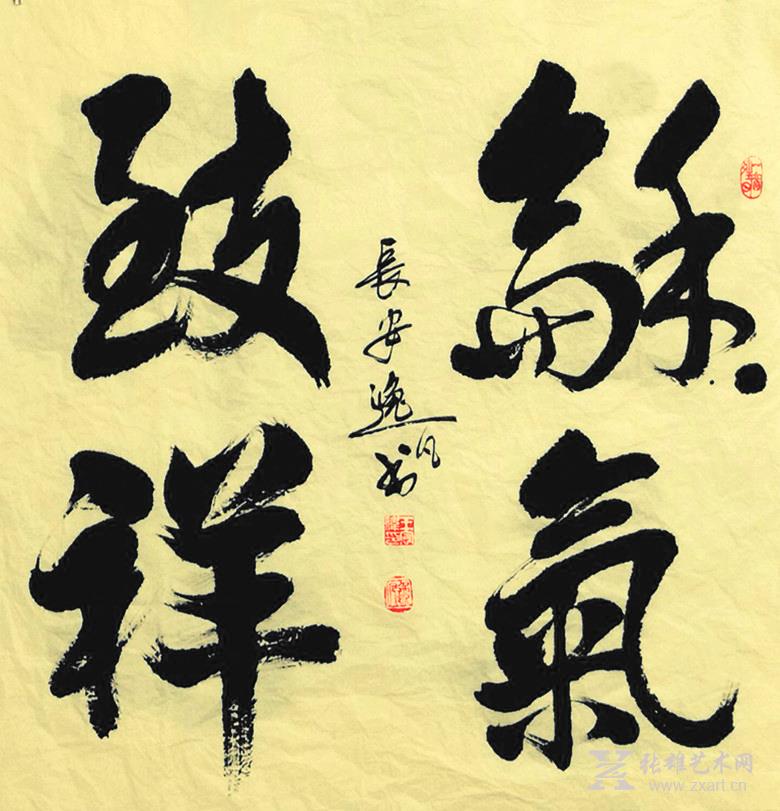 龢氣
致祥
長安逸凡书
张雄艺术网
www.zxart.cn